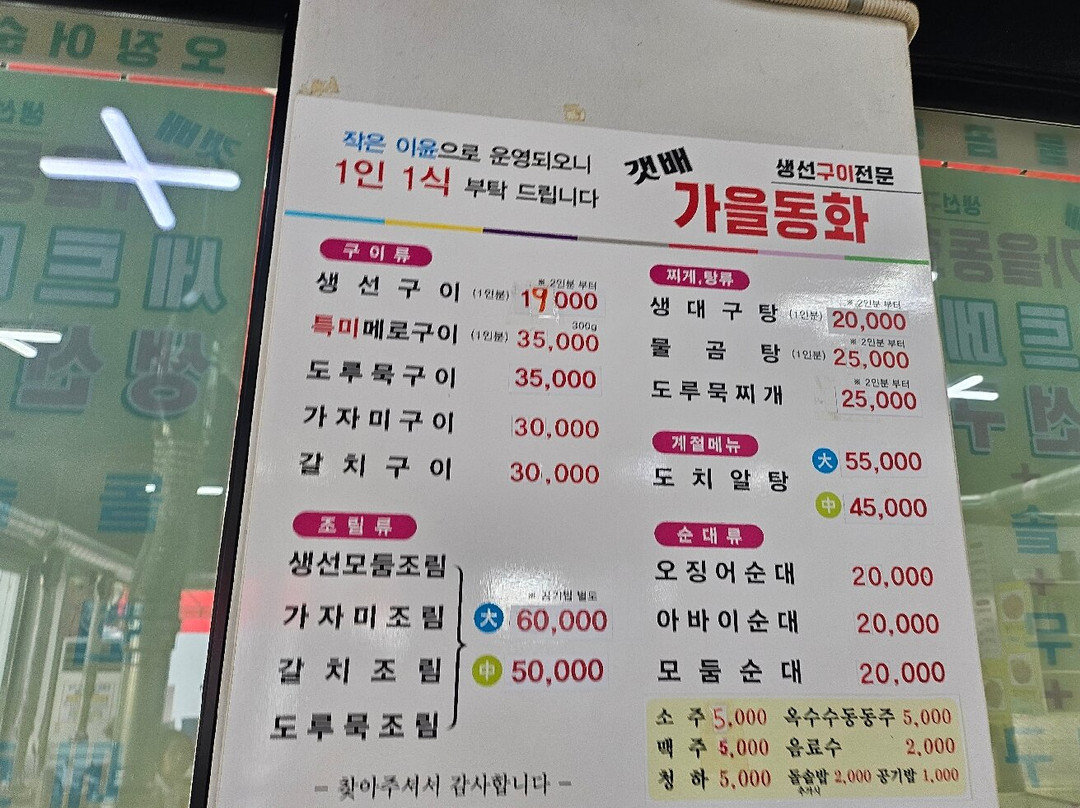 작은 이윤으로 운영되오니
1인 1식 부탁 드립니다
갯배 생선구이전문
가을동화
구이류
생선구이 (1인분) ※ 2인분 부터 19,000
특미메로구이 (1인분) 300g 35,000
도루묵구이 35,000
가자미구이 30,000
갈치구이 30,000
조림류
생선모둠조림
가자미조림
갈치조림
도루묵조림
※ 공기밥 별도
大 60,000
中 50,000
- 찾아주셔서 감사합니다 -
찌게,탕류
생대구탕 (1인분) ※ 2인분 부터 20,000
물곰탕 (1인분) ※ 2인분 부터 25,000
도루묵찌개 ※ 2인분 부터 25,000
계절메뉴
도치알탕 大 55,000
中 45,000
순대류
오징어순대 20,000
아바이순대 20,000
모둠순대 20,000
소주 5,000 옥수수동동주 5,000
맥주 5,000 음료수 2,000
청하 5,000 돌솥밥 추가시 2,000 공기밥 1,000